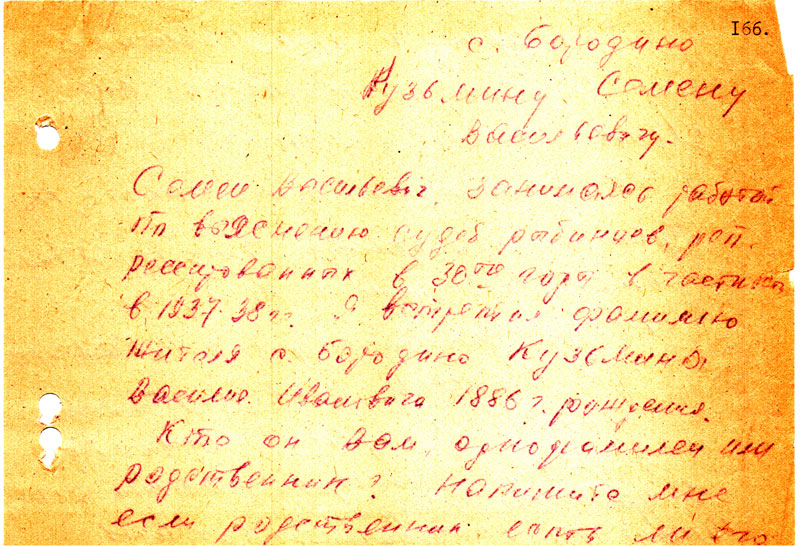 166.
с. Бородино
Кузьмину Семену
Васильевичу.
Семен Васильевич, занимаясь работой
по выяснению судеб рыбинцев, реп-
рессированных в 30тые годы в частности
в 1937-38 гг. Я встретил фамилию
жителя с. Бородино Кузьмина
Василия Ивановича 1886 г. рождения.
Кто он Вам, однофамилец или
родственник? Напишите мне
если родственник, есть ли его